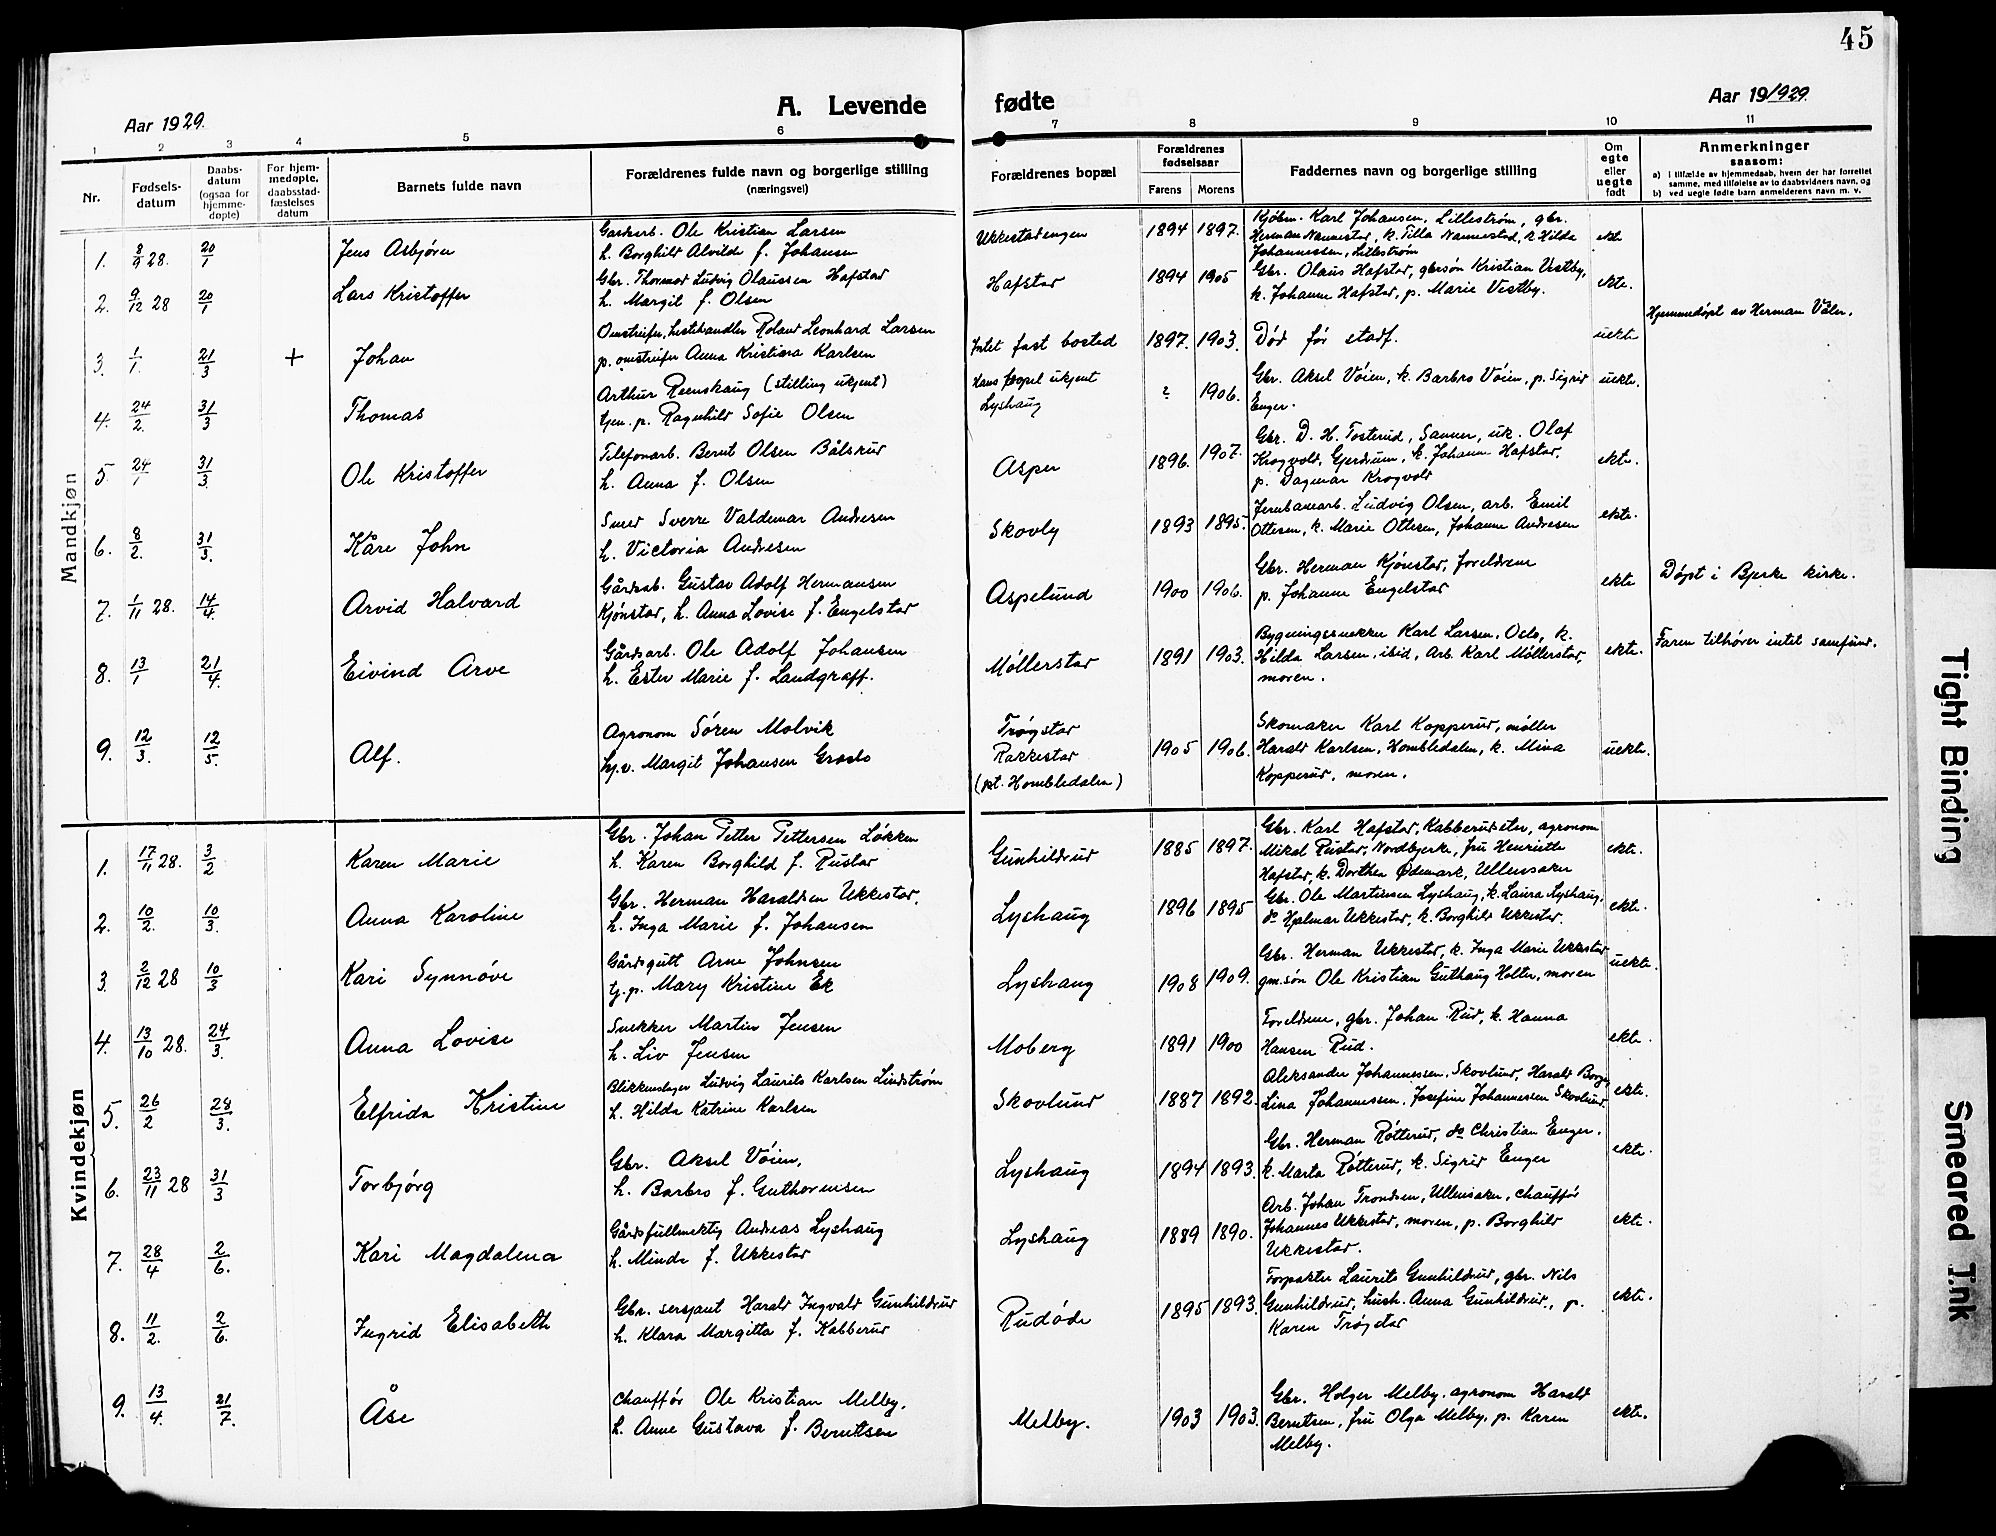 45
Aar 1929.
A. Levende fødte
Aar 19/1929.
1 2 3 4 5 6 7 8 9 10 11
Nr.
Fødsels-
datum
Daabs-
datum
(ogsaa for
hjemme-
døpte)
For hjem-
medøpte,
daabsstad-
fæstelses
datum
Barnets fulde navn
Forældrenes fulde navn og borgerlige stilling
(næringsvei)
Forældrenes bopæl
Forældrenes
fødselsaar
Farens Morens
Faddernes navn og borgerlige stilling
Om
egte
eller
uegte
født
Anmerkninger
saasom:
a) i tilfælde av hjemmedaab, hvem der har forrettet
samme, med tilføielse av to daabsvidners navn, og
b) ved uegte fødte barn anmelderens navn m. v.
Mandkjøn
1. 8/9 28. 20/1 Jens Asbjørn
Gardsarb. Ole Kristian Larsen
h. Borghild Alvilde f. Johansen
Ukkestadengen 1894 1897.
Kjøbm. Karl Johansen, Lillestrøm, gbr.
Herman Nannestad, k. Tilla Nannestad, k. Hilda
Johannessen, Lillestrøm
ekte
2. 9/12 28 20/1 Lars Kristoffer
Gbr. Thormod Ludvig Olaussen Hafstad
h. Margit f. Olsen
Hafstad 1894 1905
Gbr. Olaus Hafstad, gbrsøn Kristian Vestby,
k. Johanne Hafstad, p. Marie Vestby.
ekte.
3. 1/1. 21/3 + Johan
Omstreifer, hestehandler Roland Leonhard Larsen
p. omstreifer Anna Kristiana Karlsen
Intet fast bosted 1897. 1903.
Død før stadf.
uekte
Hjemmedøpt av Herman Våler.
4. 24/2. 31/3 Thomas
Arthur Reenskaug (stilling ukjent)
tjen. p. Ragnhild Sofie Olsen
Hans bopel ukjent
Lyshaug ? 1906.
Gbr. Aksel Vøien, k. Barbro Vøien, p. Sigrid
Enger.
uekte.
5. 24/1 31/3. Ole Kristoffer
Telefonarb. Bernt Olsen Bålsrud
h. Anna f. Olsen
Asper 1896. 1907.
Gbr. D. H. Tosterud, Sanner, uk. Olaf
Krogvold, Gjerdrum, k. Johanne Hafstad,
p. Dagmar Krogvold
ekte.
6. 8/2. 31/3. Kåre John
Smed Sverre Valdemar Andresen
h. Victoria Andresen
Skovly 1893 1895.
Jernbanearb. Ludvig Olsen, arb. Emil
Ottesen, k. Marie Ottesen, Johanne Andresen
ekte.
7. 1/11 28. 14/4. Arvid Halvard
Gårdsarb. Gustav Adolf Hermansen
Kjønstad, h. Anna Lovise f. Engelstad
Aspelund 1900 1906.
Gbr. Herman Kjønstad, foreldrene
p. Johanne Engelstad
ekte
Døpt i Bjerke kirke.
8. 13/1 21/4. Eivind Arve
Gårdsarb. Ole Adolf Johansen
h. Ester Marie f. Landgraff.
Møllerstad 1891 1903.
Bygningssnekker Karl Larsen, Oslo, k.
Hilda Larsen, ibid, Arb. Karl Møllerstad,
moren.
ekte.
Faren tilhører intet samfund.
9. 12/3. 12/5. Alf.
Agronom Søren Molvik
hj.v. Margit Johansen Graslo
Trøgstad
Rakkestad
(pt. Hombledalen) 1905 1906.
Skomaker Karl Kopperud, møller
Harald Karlsen, Hombledalen, k. Mina
Kopperud, moren.
uekte.
Kvindekjøn
1. 17/11 28. 3/2 Karen Marie
Gbr. Johan Petter Pettersen Løkken
h. Karen Borghild f. Rustad
Gunhildrud 1885 1897.
Gbr. Karl Hafstad, Kabberudeter, agronom
Mikal Rustad, Nordbjerke, fru Henriette
Hafstad, k. Dorthea Ødemark, Ullensaker
ekte.
2. 10/2. 10/3. Anna Karoline
Gbr. Herman Haraldsen Ukkestad,
h. Inga Marie f. Johansen
Lyshaug 1896 1895
Gbr. Ole Martinsen Lyshaug, k. Laura Lyshaug,
do Hjalmar Ukkestad, k. Borghild Ukkestad.
ekte.
3. 2/12 28 10/3 Kari Synnøve
Gårdsgutt Arne Johnsen
tj. p. Mary Kristine Ek
Lyshaug 1908 1909.
Gbr. Herman Ukkestad, k. Inga Marie Ukkestad
gm.søn Ole Kristian Guthaug Holter, moren
uekte.
4. 13/10 28. 24/3. Anna Lovise
Snekker Martin Jensen
h. Liv Jensen
Moberg 1891 1900
Foreldrene, gbr. Johan Rud, k. Hanna
Hansen Rud.
ekte.
5. 26/2 28/3. Elfrida Kristine
Blikkenslager Ludvig Laurits Karlsen Lindstrøm
h. Hilda Katrine Karlsen
Skovlund 1887 1892.
Aleksander Johannessen, Skovlund, Harald Borge,
Lina Johannessen, Josefine Johannessen Skovlund.
ekte.
6. 23/11 28 31/3 Torbjørg
Gbr. Aksel Vøien,
h. Barbro f. Guthormsen
Lyshaug 1894 1893.
Gbr. Herman Røtterud, do Christian Enger.
k. Marta Røtterud, k. Sigrid Enger
ekte.
7. 28/4 2/6. Kari Magdalena
Gårdsfullmektig Andreas Lyshaug
h. Minda f. Ukkestad
Lyshaug 1889 1890.
Arb. Johan Trondsen, Ullensaker, chauffør
Johannes Ukkestad, moren, p. Borghild
Ukkestad.
ekte.
8. 11/2. 2/6. Ingrid Elisabeth
Gbr. sersjant Harald Ingvald Gunhildrud
h. Klara Margitta f. Kabberud
Rudøde 1895 1893.
Forpakter Laurits Gunhildrud, gbr. Nils
Gunhildrud, hush. Anna Gunhildrud, p.
Karen Trøgstad
ekte.
9. 13/4. 21/7. Åse
Chauffør Ole Kristian Melby,
h. Anne Gustava f. Berntsen
Melby. 1903 1903.
Gbr. Holger Melby, agronom Harald
Berntsen, fru Olga Melby, p. Karen
Melby.
ekte.
Tight Binding
Smeared Ink